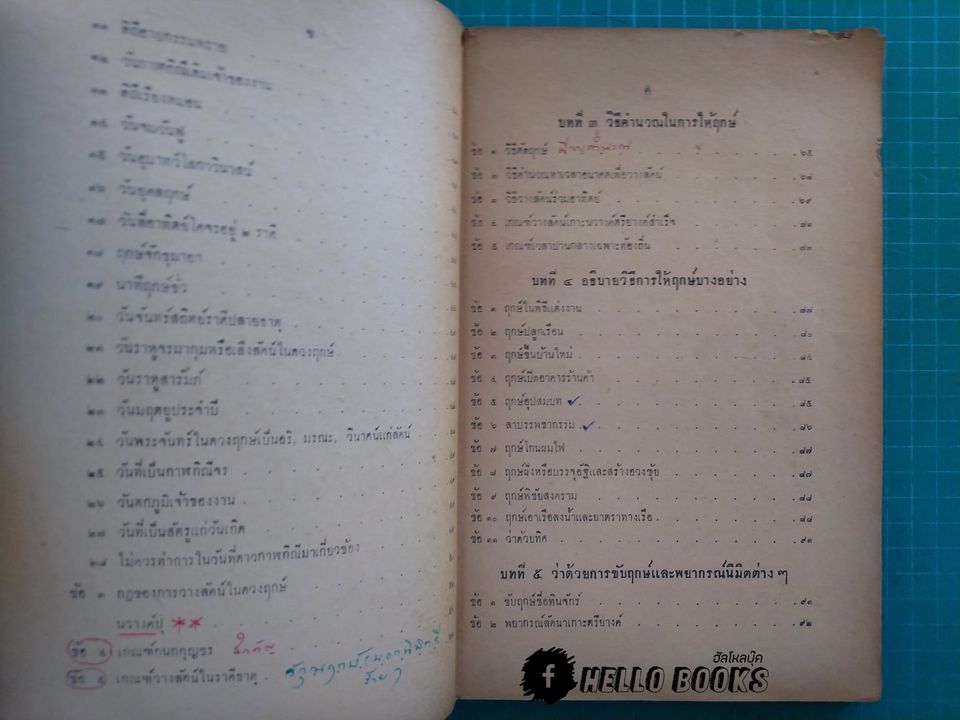 ข
๑๑ ดิถีอายกรรมพราย
๑๒ วันกาลกิณีเดิมเจ้าของงาน
๑๓ ดิถีเรียงหมอน
๑๔ วันจมวันฟู
๑๕ วันอุบาทว์โลกาวินาสน์
๑๖ วันยุคลฤกษ์
๑๗ วันที่อาทิตย์โคจรอยู่ ๒ ราศี
๑๘ ฤกษ์จักขุมายา
๑๙ นาทีฤกษ์ชั่ว
๒๐ วันจันทร์สถิตย์ราศีปลายธาตุ
๒๑ วันราหูจรมากุมหรือเล็งลัคน์ในดวงฤกษ์
๒๒ วันราหูสารัมภ์
๒๓ วันมฤตยูประจำปี
๒๔ วันพระจันทร์ในดวงฤกษ์เป็นอริ, มรณะ, วินาศน์แก่ลัคน์
๒๕ วันที่เป็นกาฬกิณีจร
๒๖ วันตกภูมิเจ้าของงาน
๒๗ วันที่เป็นสัตรูแก่วันเกิด
๒๘ ไม่ควรทำการในวันที่ดาวกาฬกิณีมาเกี่ยวข้อง
ข้อ ๓ กฎของการวางลัคน์ในดวงฤกษ์
นวางค์ปุ **
ข้อ ๔ เกณฑ์กนกกุญชร
ข้อ ๕ เกณฑ์วางลัคน์ในราศีธาตุ
ค
บทที่ ๓ วิธีคำนวณในการให้ฤกษ์
ข้อ ๑ วิธีตัดฤกษ์ ๖๕
ข้อ ๒ วิธีคำนวณหาเวลาอนาคตเพื่อวางลัคน์ ๖๘
ข้อ ๓ วิธีวางลัคน์ร่วมอาทิตย์ ๖๙
ข้อ ๔ เกณฑ์วางลัคน์เกาะนวางค์ตรียางค์สำเร็จ ๗๑
ข้อ ๕ เกณฑ์เวลาปานกลางเฉพาะท้องถิ่น ๗๓
บทที่ ๔ อธิบายวิธีการให้ฤกษ์บางอย่าง
ข้อ ๑ ฤกษ์ในพิธีแต่งงาน ๗๗
ข้อ ๒ ฤกษ์ปลูกเรือน ๘๐
ข้อ ๓ ฤกษ์ขึ้นบ้านใหม่ ๘๔
ข้อ ๔ ฤกษ์เปิดอาคารร้านค้า ๘๕
ข้อ ๕ ฤกษ์อุปสมบท ✓ ๘๕
ข้อ ๖ ลาบรรพชากรรม ✓ ๘๖
ข้อ ๗ ฤกษ์โกนผมไฟ ๘๗
ข้อ ๘ ฤกษ์ฝังหรือบรรจุอัฐิและสร้างฮวงซุ้ย ๘๗
ข้อ ๙ ฤกษ์พิชัยสงคราม ๘๘
ข้อ ๑๐ ฤกษ์เอาเรือลงน้ำและยาตราทางเรือ ๘๘
ข้อ ๑๑ ว่าด้วยทิศ ๙๑
บทที่ ๕ ว่าด้วยการขับฤกษ์และพยากรณ์นิมิตต่าง ๆ
ข้อ ๑ ขับฤกษ์ชื่อทินจักร์ ๙๑
ข้อ ๒ พยากรณ์ลัคนาเกาะตรียางค์ ๙๒
ฮัลโหลบุ๊ค
f HELLO BOOKS